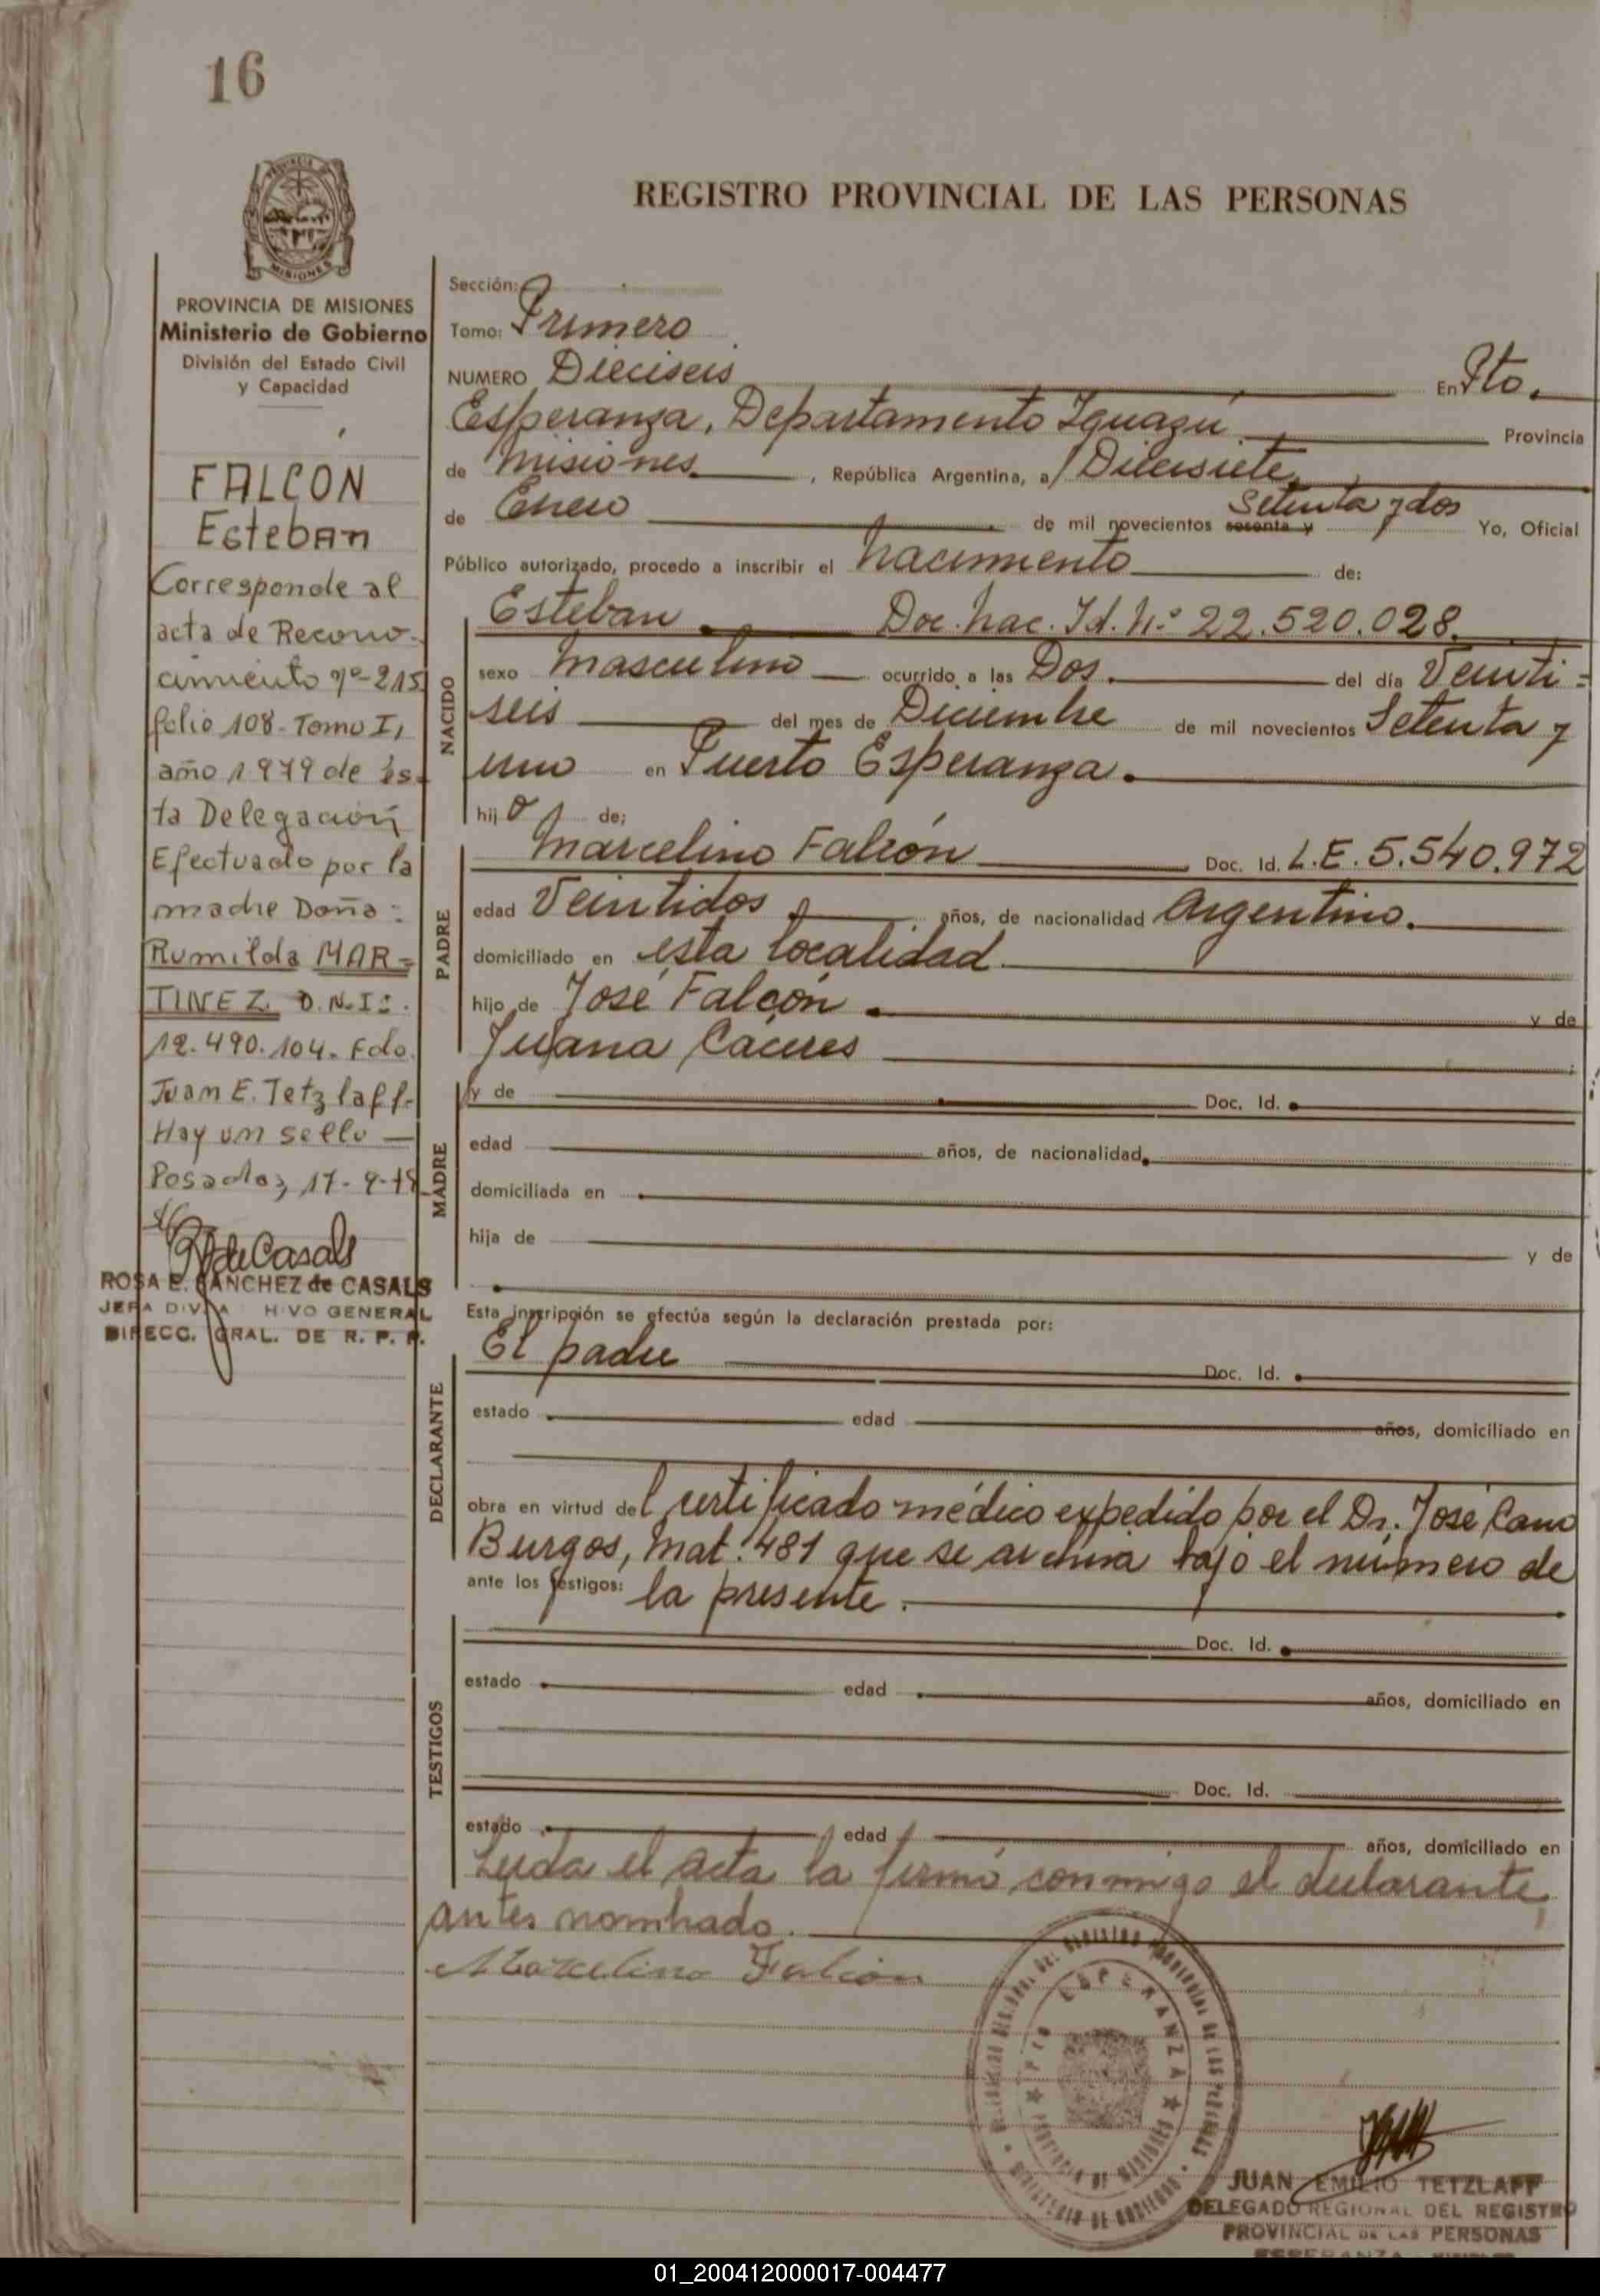 16
REGISTRO PROVINCIAL DE LAS PERSONAS
PROVINCIA DE MISIONES
Ministerio de Gobierno
División del Estado Civil
y Capacidad
FALCON
Esteban
Corresponde al
acta de Recono-
cimiento nº 215
folio 108 - Tomo I,
año 1979 de és-
ta Delegación
Efectuado por la
madre Doña:
Rumilda MAR=
TINEZ D.N.I:.
12.490.104. Fdo.
Juan E. Tetzlaff.
Hay un sello —
Posadas, 17-9-
ROSA E. SANCHEZ de CASALS
JEFA DIV. HIVO GENERAL
DIRECC. GRAL. DE R. P. P.
Sección:
Tomo: Primero
NUMERO Dieciseis En Pto.
Esperanza, Departamento Iguazú Provincia
de Misiones, República Argentina, a Diecisiete
de Enero de mil novecientos sesenta y Setenta y dos Yo, Oficial
Público autorizado, procedo a inscribir el nacimiento de:
NACIDO
Esteban Doc. Nac. Id. Nº 22.520.028.
sexo Masculino ocurrido a las Dos. del día Veinti=
seis del mes de Diciembre de mil novecientos Setenta y
uno en Puerto Esperanza.
hijo de:
PADRE
Marcelino Falcón Doc. Id. L.E. 5.540.972
edad Veintidos años, de nacionalidad Argentino.
domiciliado en esta localidad
hijo de José Falcón y de
Juana Cáceres
MADRE
y de Doc. Id.
edad años, de nacionalidad
domiciliada en
hija de y de
Esta inscripción se efectúa según la declaración prestada por:
DECLARANTE
El padre Doc. Id.
estado edad años, domiciliado en
obra en virtud del certificado médico expedido por el Dr. José Cano
Burgos, Mat. 481 que se archiva bajo el número de
ante los testigos: la presente.
TESTIGOS
Doc. Id.
estado edad años, domiciliado en
Doc. Id.
estado edad años, domiciliado en
Leida el acta la firmó conmigo el declarante
antes nombrado.
Marcelino Falcon
PTO ESPERANZA
PROVINCIA DE MISIONES
MINISTERIO DE GOBIERNO
JUAN EMILIO TETZLAFF
DELEGADO REGIONAL DEL REGISTRO
PROVINCIAL DE LAS PERSONAS
01_200412000017-004477